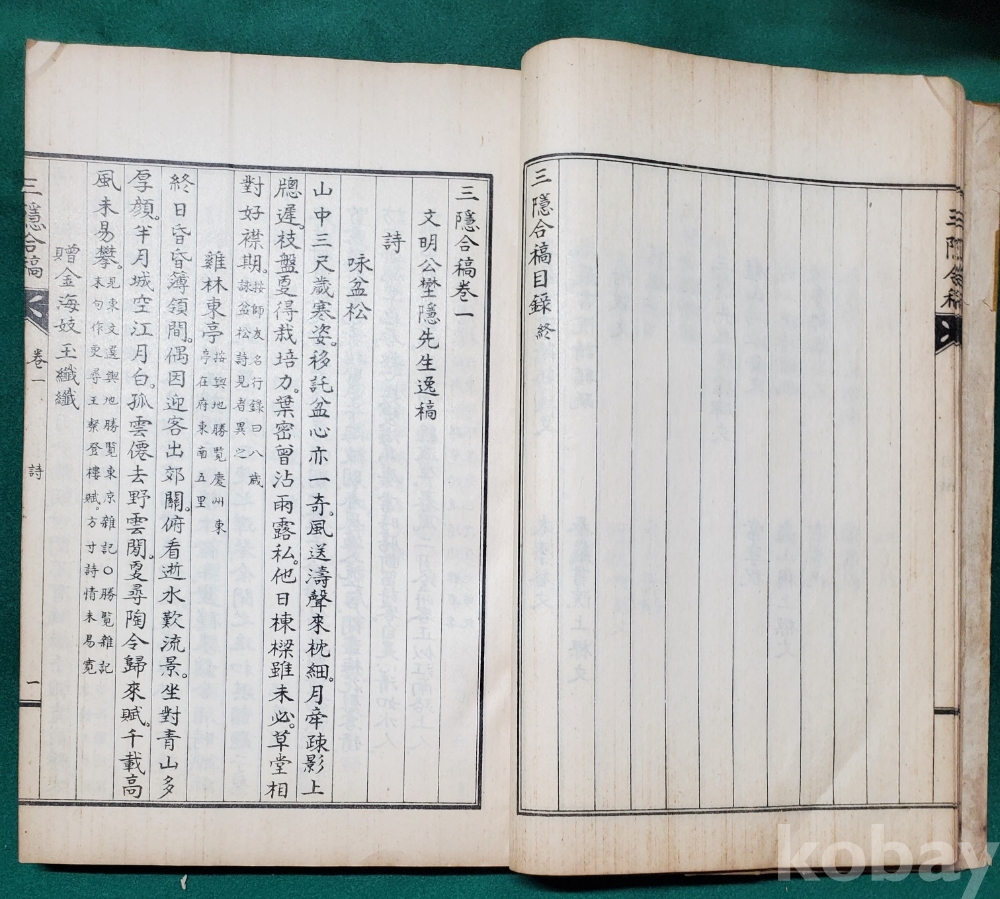 三隱合稿目錄 終
三隱合稿
三隱合稿卷一
文明公樊隱先生逸稿
詩
咏盆松
山中三尺歲寒姿。移託盆心亦一奇。風送濤聲來枕細。月牽疎影上
牕遲。枝盤夏得栽培力。葉密曾沾雨露私。他日棟樑雖未必。草堂相
對好襟期。按師友名行錄曰八歲
詠盆松詩見者異之
雞林東亭 按輿地勝覽慶州東
亭在府東南五里
終日昏昏簿領間。偶因迎客出郊關。俯看逝水歎流景。坐對青山多
厚顔。半月城空江月白。孤雲僊去野雲閒。更尋陶令歸來賦。千載高
風未易攀。見東文選輿地勝覽東京雜記○勝覽雜記
末句作更尋王粲登樓賦。方寸詩情未易寬
贈金海妓玉纖纖
三隱合稿
卷一
詩
一
kobay